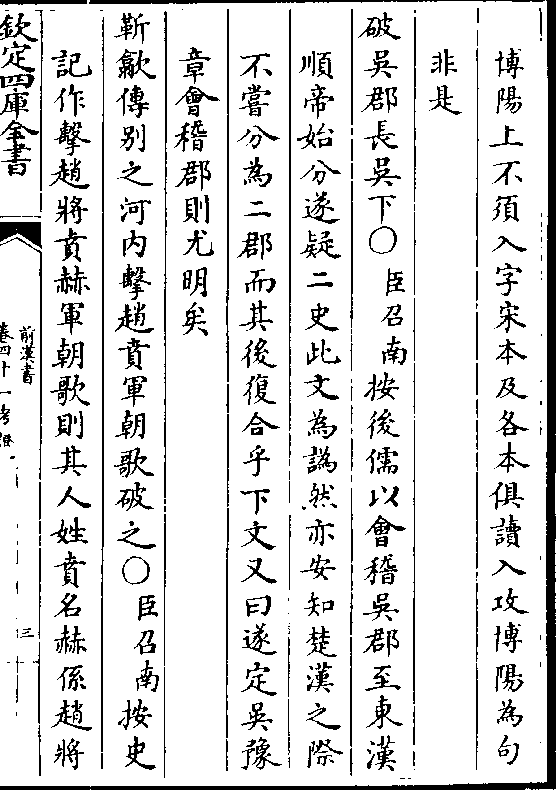 博陽上不須入字宋本及各本俱讀入攻博陽為句
非是
破吳郡長吳下○臣召南按後儒以會稽吳郡至東漢
順帝始分遂疑二史此文為譌然亦安知楚漢之際
不嘗分為二郡而其後復合乎下文又曰遂定吳豫
章會稽郡則尤明矣
靳歙傳別之河内擊趙賁軍朝歌破之○臣召南按史
記作擊趙將賁赫軍朝歌則其人姓賁名赫係趙將
欽定四庫全書
前漢書
卷四十一考證
三